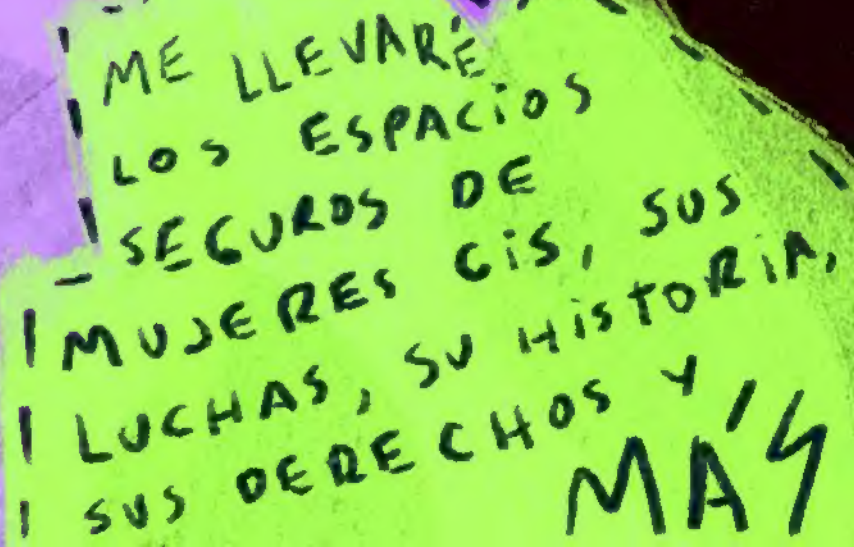 ME LLEVARÉ
LOS ESPACiOS
SEGUROS DE
MUJERES CiS, SUS
LUCHAS, SU HiSTORiA,
SUS DERECHOS Y
MÁS